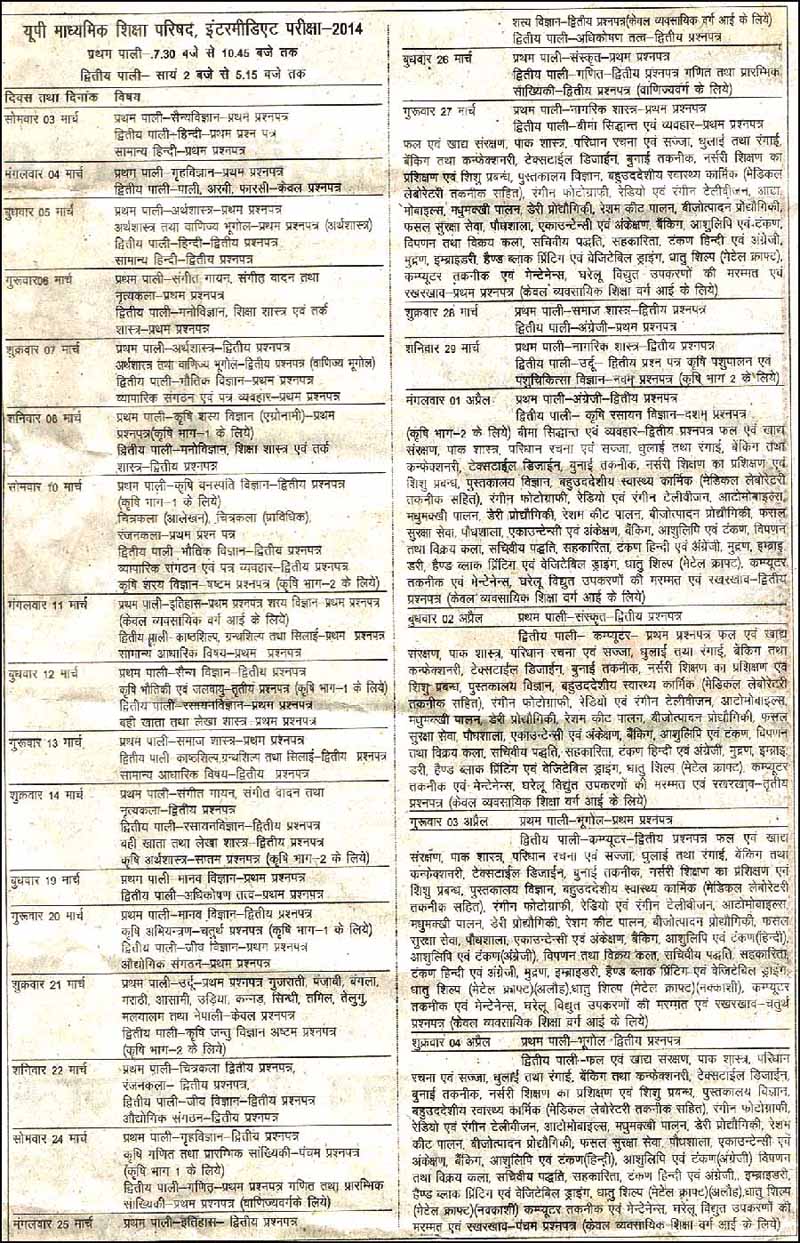 यूपी माध्यमिक शिक्षा परिषद, इंटरमीडिएट परीक्षा–2014
प्रथम पाली–.7.30 बजे से 10.45 बजे तक
द्वितीय पाली– सायं 2 बजे से 5.15 बजे तक
दिवस तथा दिनांक विषय
सोमवार 03 मार्च प्रथम पाली–सैन्यविज्ञान–प्रथम प्रश्नपत्र
द्वितीय पाली–हिन्दी–प्रथम प्रश्न पत्र
सामान्य हिन्दी–प्रथम प्रश्नपत्र
मंगलवार 04 मार्च प्रथम पाली–गृहविज्ञान–प्रथम प्रश्नपत्र
द्वितीय पाली–पाली, अरबी, फारसी–केवल प्रश्नपत्र
बुधवार 05 मार्च प्रथम पाली–अर्थशास्त्र–प्रथम प्रश्नपत्र
अर्थशास्त्र तथा वाणिज्य भूगोल–प्रथम प्रश्नपत्र (अर्थशास्त्र)
द्वितीय पाली–हिन्दी–द्वितीय प्रश्नपत्र
सामान्य हिन्दी–द्वितीय प्रश्नपत्र
गुरूवार06 मार्च प्रथम पाली–संगीत गायन, संगीत वादन तथा
नृत्यकला–प्रथम प्रश्नपत्र
द्वितीय पाली–मनोविज्ञान, शिक्षा शास्त्र एवं तर्क
शास्त्र–प्रथम प्रश्नपत्र
शुक्रवार 07 मार्च प्रथम पाली–अर्थशास्त्र–द्वितीय प्रश्नपत्र
अर्थशास्त्र तथा वाणिज्य भूगोल–द्वितीय प्रश्नपत्र (वाणिज्य भूगोल)
द्वितीय पाली–भौतिक विज्ञान–प्रथम प्रश्नपत्र
व्यापारिक संगठन एवं पत्र व्यवहार–प्रथम प्रश्नपत्र
शनिवार 08 मार्च प्रथम पाली–कृषि शस्य विज्ञान (एग्रोनामी)–प्रथम
प्रश्नपत्र(कृषि भाग–1 के लिये)
द्वितीय पाली–मनोविज्ञान, शिक्षा शास्त्र एवं तर्क
शास्त्र–द्वितीय प्रश्नपत्र
सोमवार 10 मार्च प्रथम पाली–कृषि वनस्पति विज्ञान–द्वितीय प्रश्नपत्र
(कृषि भाग–1 के लिये)
चित्रकला (आलेखन), चित्रकला (प्राविधिक),
रंजनकला– प्रथम प्रश्न पत्र
द्वितीय पाली–भौतिक विज्ञान–द्वितीय प्रश्नपत्र
व्यापारिक संगठन एवं पत्र व्यवहार–द्वितीय प्रश्नपत्र
कृषि शस्य विज्ञान–षष्टम प्रश्नपत्र (कृषि भाग–2 के लिये)
मंगलवार 11 मार्च प्रथम पाली–इतिहास–प्रथम प्रश्नपत्र शस्य विज्ञान–प्रथम प्रश्नपत्र
(केवल व्यवसायिक वर्ग आई के लिये)
द्वितीय पाली–काष्ठशिल्प, ग्रन्थशिल्प तथा सिलाई–प्रथम प्रश्नपत्र
सामान्य आधारिक विषय–प्रथम प्रश्नपत्र
बुधवार 12 मार्च प्रथम पाली–सैन्य विज्ञान–द्वितीय प्रश्नपत्र
कृषि भौतिकी एवं जलवायु–तृतीय प्रश्नपत्र (कृषि भाग–1 के लिये)
द्वितीय पाली–रसायनविज्ञान–प्रथम प्रश्नपत्र
बही खाता तथा लेखा शास्त्र–प्रथम प्रश्नपत्र
गुरूवार 13 मार्च प्रथम पाली–समाज शास्त्र–प्रथम प्रश्नपत्र
द्वितीय पाली काष्ठशिल्प,ग्रन्थशिल्प तथा सिलाई–द्वितीय प्रश्नपत्र
सामान्य आधारिक विषय–द्वितीय प्रश्नपत्र
शुक्रवार 14 मार्च प्रथम पाली–संगीत गायन, संगीत वादन तथा
नृत्यकला–द्वितीय प्रश्नपत्र
द्वितीय पाली–रसायनविज्ञान–द्वितीय प्रश्नपत्र
बही खाता तथा लेखा शास्त्र–द्वितीय प्रश्नपत्र
कृषि अर्थशास्त्र–सातम प्रश्नपत्र (कृषि भाग–2 के लिये)
बुधवार 19 मार्च प्रथम पाली–मानव विज्ञान–प्रथम प्रश्नपत्र
द्वितीय पाली–अधिकोषण तत्व–प्रथम प्रश्नपत्र
गुरूवार 20 मार्च प्रथम पाली–मानव विज्ञान–द्वितीय प्रश्नपत्र
कृषि अभियन्त्रण–चतुर्थ प्रश्नपत्र (कृषि भाग–1 के लिये)
द्वितीय पाली–जीव विज्ञान–प्रथम प्रश्नपत्र
औद्योगिक संगठन–प्रथम प्रश्नपत्र
शुक्रवार 21 मार्च प्रथम पाली–उर्दू–प्रथम प्रश्नपत्र गुजराती, पंजाबी, बंगला,
मराठी, आसामी, उड़िया, कन्नड़, सिन्धी, तमिल, तेलुगु,
मलयालम तथा नेपाली–केवल प्रश्नपत्र
द्वितीय पाली–कृषि जन्तु विज्ञान अष्टम प्रश्नपत्र
(कृषि भाग–2 के लिये)
शनिवार 22 मार्च प्रथम पाली–चित्रकला द्वितीय प्रश्नपत्र,
रंजनकला– द्वितीय प्रश्नपत्र,
द्वितीय पाली–जीव विज्ञान–द्वितीय प्रश्नपत्र
औद्योगिक संगठन–द्वितीय प्रश्नपत्र
सोमवार 24 मार्च प्रथम पाली–गृहविज्ञान–द्वितीय प्रश्नपत्र
कृषि गणित तथा प्रारम्भिक सांख्यिकी–पंचम प्रश्नपत्र
(कृषि भाग 1 के लिये)
द्वितीय पाली–गणित–प्रथम प्रश्नपत्र गणित तथा प्रारम्भिक
सांख्यिकी–प्रथम प्रश्नपत्र (वाणिज्यवर्गके लिये)
मंगलवार 25 मार्च प्रथम पाली–इतिहास– द्वितीय प्रश्नपत्र
शस्य विज्ञान–द्वितीय प्रश्नपत्र(केवल व्यवसायिक वर्ग आई के लिये)
द्वितीय पाली–अधिकोषण तत्व–द्वितीय प्रश्नपत्र
बुधवार 26 मार्च प्रथम पाली–संस्कृत–प्रथम प्रश्नपत्र
द्वितीय पाली–गणित–द्वितीय प्रश्नपत्र गणित तथा प्रारम्भिक
सांख्यिकी–द्वितीय प्रश्नपत्र (वाणिज्यवर्ग के लिये)
गुरूवार 27 मार्च प्रथम पाली–नागरिक शास्त्र–प्रथम प्रश्नपत्र
द्वितीय पाली–बीमा सिद्धान्त एवं व्यवहार–प्रथम प्रश्नपत्र
फल एवं खाद्य संरक्षण, पाक शास्त्र, परिधान रचना एवं सज्जा, धुलाई तथा रंगाई,
बेंकिंग तथा कन्फेक्शनरी, टेक्सटाईल डिजाईन, बुनाई तकनीक, नर्सरी शिक्षण का
प्रशिक्षण एवं शिशु प्रबन्ध, पुस्तकालय विज्ञान, बहुउददेशीय स्वास्थ्य कार्मिक (मेडिकल
लेबोरेटरी तकनीक सहित), रंगीन फोटोग्राफी, रेडियो एवं रंगीन टेलीविजन, आटो
मोबाइल्स, मधुमक्खी पालन, डेरी प्रोद्यौगिकी, रेशम कीट पालन, बीजोत्पादन प्रोद्यौगिकी,
फसल सुरक्षा सेवा, पौधशाला, एकाउन्टेन्सी एवं अंकेक्षण, बैंकिंग, आशुलिपि एवं टंकण,
विपणन तथा विक्रय कला, सचिवीय पद्धति, सहकारिता, टंकण हिन्दी एवं अंग्रेजी,
मुद्रण, इम्ब्राडरी, हैण्ड ब्लाक प्रिंटिग एवं वेजिटेबिल ड्राइंग, धातु शिल्प (मेटेल क्राफ्ट),
कम्प्यूटर तकनीक एवं मेन्टेनेन्स, घरेलू विद्युत उपकरणों की मरम्मत एवं
रखरखाव–प्रथम प्रश्नपत्र (केवल व्यवसायिक शिक्षा वर्ग आई के लिये)
शुक्रवार 28 मार्च प्रथम पाली–समाज शास्त्र–द्वितीय प्रश्नपत्र
द्वितीय पाली–अंग्रेजी–प्रथम प्रश्नपत्र
शनिवार 29 मार्च प्रथम पाली–नागरिक शास्त्र–द्वितीय प्रश्नपत्र
द्वितीय पाली–उर्दू– द्वितीय प्रश्न पत्र कृषि पशुपालन एवं
पशुचिकित्सा विज्ञान–नवम् प्रश्नपत्र (कृषि भाग 2 के लिये)
मंगलवार 01 अप्रैल प्रथम पाली–अंग्रेजी–द्वितीय प्रश्नपत्र
द्वितीय पाली– कृषि रसायन विज्ञान–दशम् प्रश्नपत्र
(कृषि भाग–2 के लिये) बीमा सिद्धान्त एवं व्यवहार–द्वितीय प्रश्नपत्र फल एवं खाद्य
संरक्षण, पाक शास्त्र, परिधान रचना एवं सज्जा, धुलाई तथा रंगाई, बेंकिंग तथा
कन्फेक्शनरी, टेक्सटाईल डिजाईन, बुनाई तकनीक, नर्सरी शिक्षण का प्रशिक्षण एवं
शिशु प्रबन्ध, पुस्तकालय विज्ञान, बहुउददेशीय स्वास्थ्य कार्मिक (मेडिकल लेबोरेटरी
तकनीक सहित), रंगीन फोटोग्राफी, रेडियो एवं रंगीन टेलीवीजन, आटोमोबाइल्स,
मधुमक्खी पालन, डेरी प्रोद्यौगिकी, रेशम कीट पालन, बीजोत्पादन प्रौद्यौगिकी, फसल
सुरक्षा सेवा, पौधशाला, एकाउन्टेन्सी एवं अंकेक्षण, बैंकिंग, आशुलिपि एवं टंकण, विपणन
तथा विक्रय कला, सचिवीय पद्धति, सहकारिता, टंकण हिन्दी एवं अंग्रेजी, मुद्रण, इम्ब्रा
डरी, हैण्ड ब्लाक प्रिंटिग एवं वेजिटेबिल ड्राइंग, धातु शिल्प (मेटेल क्राफ्ट). कम्प्यूटर
तकनीक एवं मेन्टेनेन्स, घरेलू विद्युत उपकरणों की मरम्मत एवं रखरखाव–द्वितीय
प्रश्नपत्र (केवल व्यवसायिक शिक्षा वर्ग आई के लिये)
बुधवार 02 अप्रैल प्रथम पाली–संस्कृत–द्वितीय प्रश्नपत्र
द्वितीय पाली– कम्प्यूटर– प्रथम प्रश्नपत्र फल एवं खाद्य
संरक्षण, पाक शास्त्र, परिधान रचना एवं सज्जा, धुलाई तथा रंगाई, बेंकिंग तथा
कन्फेक्शनरी, टेक्सटाईल डिजाईन, बुनाई तकनीक, नर्सरी शिक्षण का प्रशिक्षण एवं
शिशु प्रबन्ध, पुस्तकालय विज्ञान, बहुउददेशीय स्वास्थ्य कार्मिक (मेडिकल लेबोरेटरी
तकनीक सहित), रंगीन फोटोग्राफी, रेडियो एवं रंगीन टेलीवीजन, आटोमोबाइल्स,
मधुमक्खी पालन, डेरी प्रोद्यौगिकी, रेशम कीट पालन, बीजोत्पादन प्रोद्यौगिकी, फसल
सुरक्षा सेवा, पौधशाला, एकाउन्टेन्सी एवं अंकेक्षण, बैंकिंग, आशुलिपि एवं टंकण, विपणन
तथा विक्रय कला, सचिवीय पद्धति, सहकारिता, टंकण हिन्दी एवं अंग्रेजी, मुद्रण, इम्ब्रा
डरी, हैण्ड ब्लाक प्रिंटिग एवं वेजिटेबिल ड्राइंग, धातु शिल्प (मेटेल क्राफ्ट), कम्प्यूटर
तकनीक एवं मेन्टेनेन्स, घरेलू विद्युत उपकरणों की मरम्मत एवं रखरखाव–तृतीय
प्रश्नपत्र (केवल व्यवसायिक शिक्षा वर्ग आई के लिये)
गुरूवार 03 अप्रैल प्रथम पाली–भूगोल–प्रथम प्रश्नपत्र
द्वितीय पाली–कम्प्यूटर–द्वितीय प्रश्नपत्र फल एवं खाद्य
संरक्षण, पाक शास्त्र, परिधान रचना एवं सज्जा, धुलाई तथा रंगाई, बेंकिंग तथा
कन्फेक्शनरी, टेक्सटाईल डिजाईन, बुनाई तकनीक, नर्सरी शिक्षण का प्रशिक्षण एवं
शिशु प्रबन्ध, पुस्तकालय विज्ञान, बहुउददेशीय स्वास्थ्य कार्मिक (मेडिकल लेबोरेटरी
तकनीक सहित), रंगीन फोटोग्राफी, रेडियो एवं रंगीन टेलीवीजन, आटोमोबाइल्स,
मधुमक्खी पालन, डेरी प्रोद्यौगिकी, रेशम कीट पालन, बीजोत्पादन प्रोद्यौगिकी, फसल
सुरक्षा सेवा, पौधशाला, एकाउन्टेन्सी एवं अंकेक्षण, बैंकिंग, आशुलिपि एवं टंकण(हिन्दी),
आशुलिपि एवं टंकण(अंग्रेजी), विपणन तथा विक्रय कला, सचिवीय पद्धति, सहकारिता,
टंकण हिन्दी एवं अंग्रेजी, मुद्रण, इम्ब्राइडरी, हैण्ड ब्लाक प्रिंटिग एवं वेजिटेबिल ड्राइंग,
धातु शिल्प (मेटेल क्राफ्ट)(अलौह),धातु शिल्प (मेटेल क्राफ्ट)(नक्काशी), कम्प्यूटर
तकनीक एवं मेन्टेनेन्स, घरेलू विद्युत उपकरणों की मरम्मत एवं रखरखाव–चतुर्थ
प्रश्नपत्र (केवल व्यवसायिक शिक्षा वर्ग आई के लिये)
शुक्रवार 04 अप्रैल प्रथम पाली–भूगोल द्वितीय प्रश्नपत्र
द्वितीय पाली–फल एवं खाद्य संरक्षण, पाक शास्त्र, परिधान
रचना एवं सज्जा, धुलाई तथा रंगाई, बेंकिंग तथा कन्फेक्शनरी, टेक्सटाईल डिजाईन,
बुनाई तकनीक, नर्सरी शिक्षण का प्रशिक्षण एवं शिशु प्रबन्ध, पुस्तकालय विज्ञान,
बहुउददेशीय स्वास्थ्य कार्मिक (मेडिकल लेबोरेटरी तकनीक सहित), रंगीन फोटोग्राफी,
रेडियो एवं रंगीन टेलीवीजन, आटोमोबाइल्स, मधुमक्खी पालन, डेरी प्रोद्यौगिकी, रेशम
कीट पालन, बीजोत्पादन प्रोद्यौगिकी, फसल सुरक्षा सेवा, पौधशाला, एकाउन्टेन्सी एवं
अंकेक्षण, बैंकिंग, आशुलिपि एवं टंकण(हिन्दी), आशुलिपि एवं टंकण(अंग्रेजी) विपणन
तथा विक्रय कला, सचिवीय पद्धति, सहकारिता, टंकण हिन्दी एवं अंग्रेजी,. इम्ब्राइडरी,
हैण्ड ब्लाक प्रिंटिग एवं वेजिटेबिल ड्राइंग, धातु शिल्प (मेटेल क्राफ्ट)(अलौह),धातु शिल्प
(मेटेल क्राफ्ट)(नक्काशी) कम्प्यूटर तकनीक एवं मेन्टेनेन्स, घरेलू विद्युत उपकरणों की
मरम्मत एवं रखरखाव–पंचम प्रश्नपत्र (केवल व्यवसायिक शिक्षा वर्ग आई के लिये)